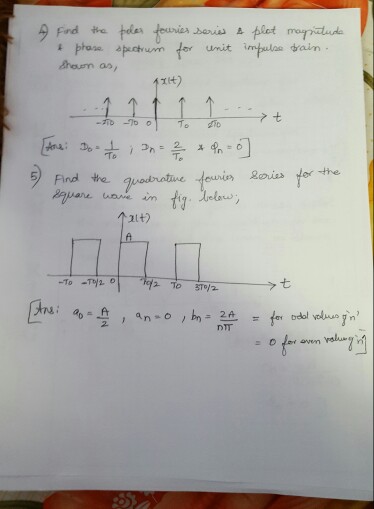 4) Find the polar fouries series & plot magnitude
& phase spectrum for unit impulse train.
Shown as,
x(t)
... ...
-2T0 -T0 0 T0 2T0 t
[Ans: D0 = 1/T0 ; Dn = 2/T0 & φn = 0]
5) Find the quadrature fourier Series for the
Square wave in fig. below;
x(t)
A
-T0 -T0/2 0 T0/2 T0 3T0/2 t
[Ans: a0 = A/2 , an = 0 , bn = 2A/nπ = for odd values of 'n'
= 0 for even values of 'n']